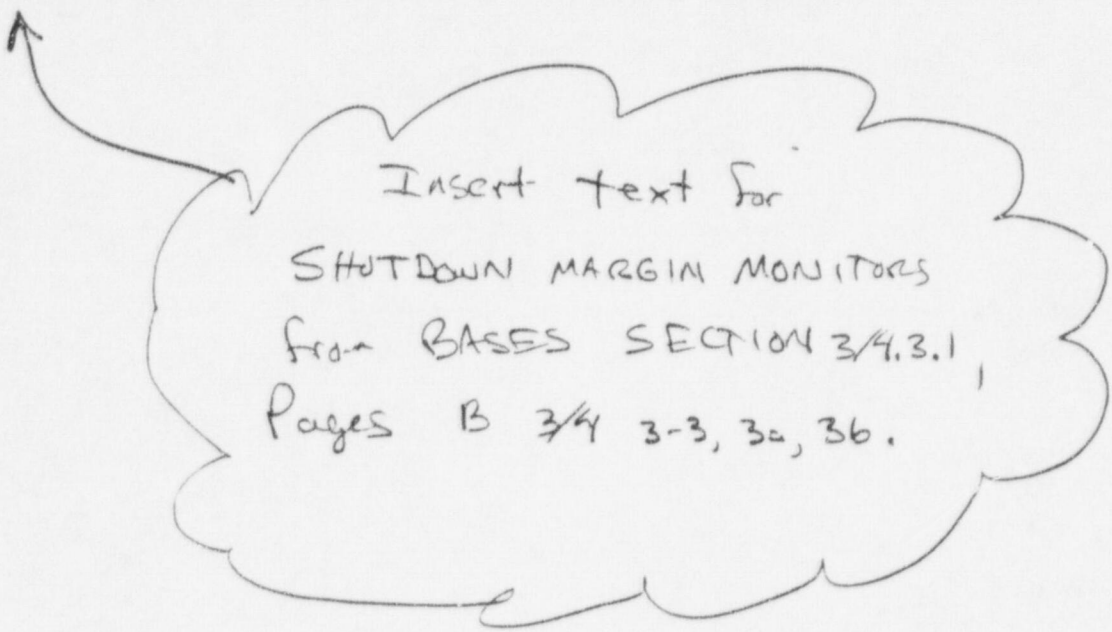 Insert text for
SHUTDOWN MARGIN MONITORS
from BASES SECTION 3/4.3.1,
Pages B 3/4 3-3, 3a, 3b.